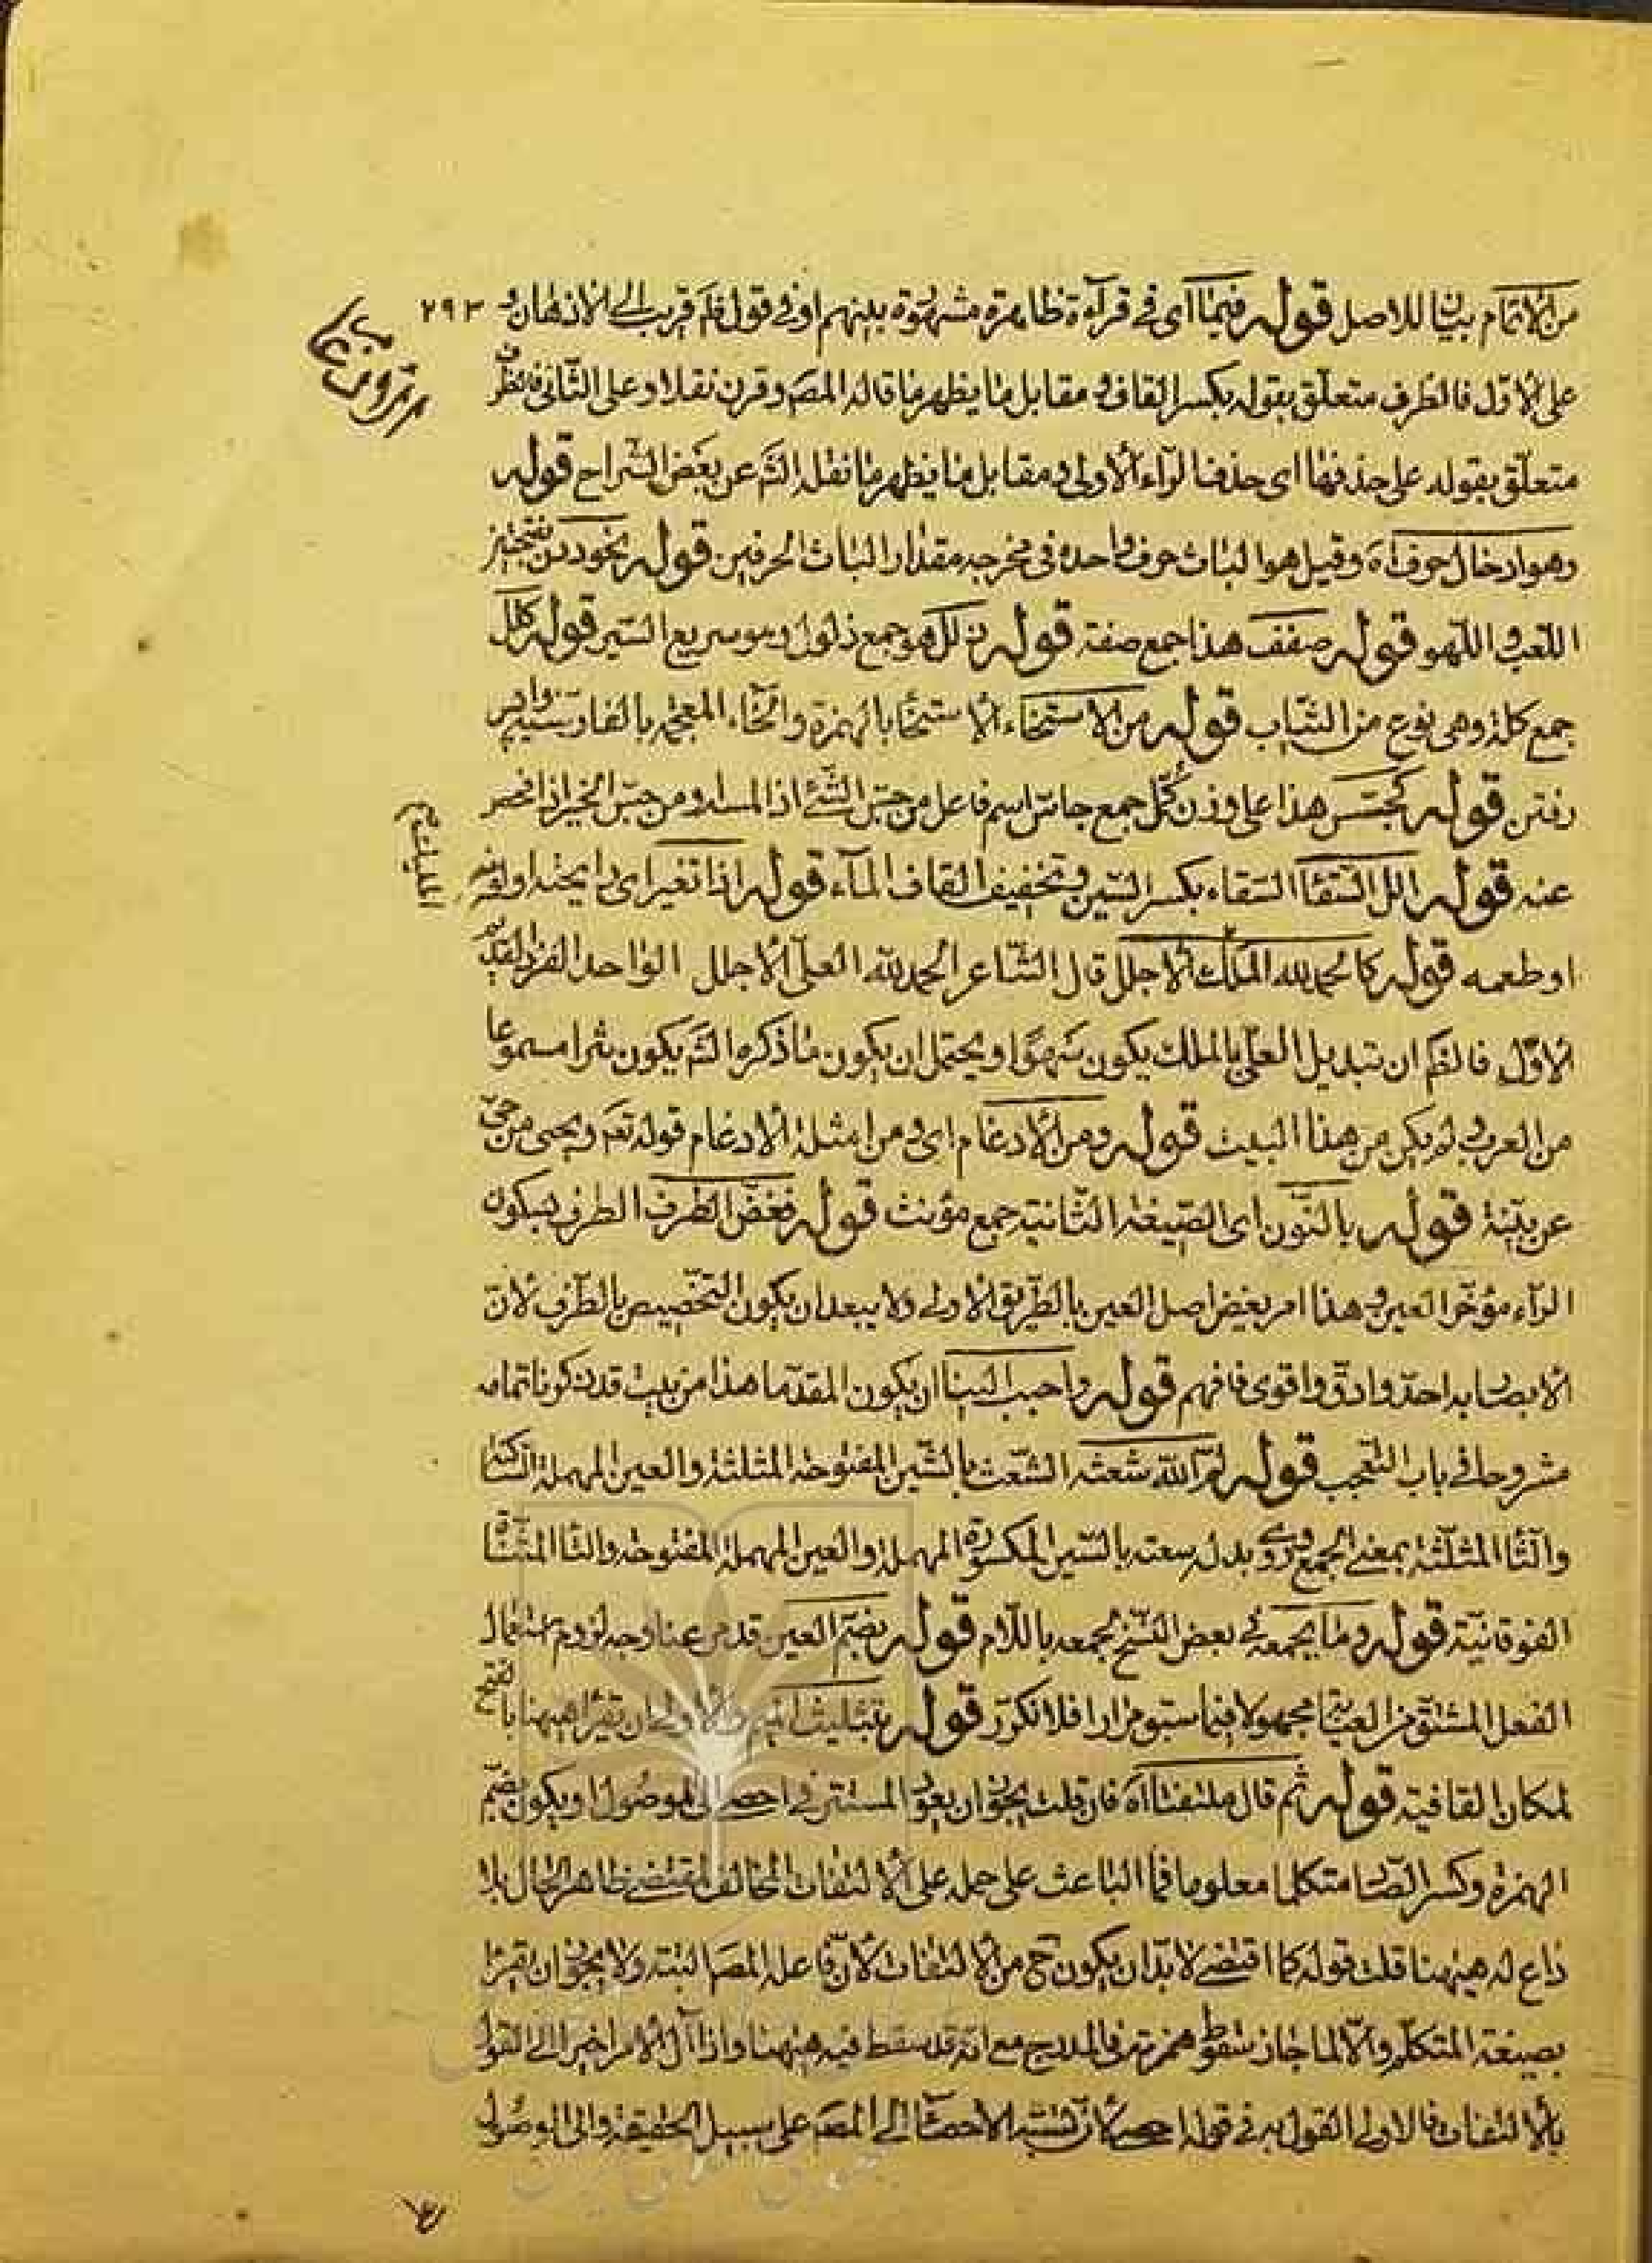 من الاتمام بيان للاصل قوله فيهما اى فى قرآءة ظاهرة مشهورة بينهم او فى قوله قلم قريب الى الاذهان و ٢٩٣
على الاوّل فالظرف متعلّق بقوله بكسر القاف و مقابل ما يظهر ما قاله المصَ و قرن نقلا و على الثّانى فالظرف
متعلّق بقوله على حذفها اى حذف الرآء الأولى و مقابل ما يظهر ما نقله الشَم عن بعض الشراح قوله
وهو ادخال حرف اه وقيل هو الباث حرف واحد فى مخرجه مقدار الباث الحرفين قوله نحو ددن بفتحتين
اللّعب و اللّهو قوله صفف هذا جمع صفة قوله ذلل هو جمع ذلول و هو سريع السّير قوله كلل
جمع كلة و هى نوع من الثياب قوله من الاستخاء الاستخا بالهمزة و الخاء المعجمة بالفارسية واپس
رفتن قوله كجسّس هذا على وزن كمّل جمع جاسّ اسم فاعل من جسّ الشّئ اذا لمسه و من جسّ الخبر اذا فحص
عنه قوله الل السّقا السّقاء بكسر السّين و تخفيف القاف المآء قوله اذا تغيّر اى رايحته او لونه
او طعمه قوله كالحمد لله الملك الاجلل قال الشّاعر الحمد لله العلىّ الاجلل الواحد الفرد القديم
الاوّل فالظَم ان تبديل العلىّ بالملك يكون سهوًا و يحتمل ان يكون ما ذكره الشَم يكون نثرا مسموعا
من العرب و لم يكن من هذا البيت قوله و من الأدغام اى و من امثلة الأدغام قوله تعَم و يحيى من حىّ
عن بيّنة قوله بالنّون اى الصّيغة الثّانية جمع مؤنث قوله فغضّ الطّرف الطرف بسكون
الرآء مؤخّر العين و هذا امر بغضّ اصل العين بالطّريق الأولى و لا يبعد ان يكون التخصيص بالطّرف لانّ
الابصار به احدّ و ادقّ و اقوى فافهم قوله واحبب الينا ان يكون المقدّما هذا من بيت قد ذكرناه تمامه
مشروحا فى باب التعجب قوله لمّ اللّه شعثه الشّعث بالشّين المفتوحة المثلثة و العين المهملة السّاكنة
و الثّا المثلّثة بمعنى الجمع و روى بدله سعته بالسّين المكسورة المهملة و العين المهملة المفتوحة و التّا المثنّاة
الفوقانيّة قوله و ما بجمعه فى بعض النّسخ لجمعه باللّام قوله بضمّ العين قد مر عنا وجه لزوم استعمال
الفعل المشتق من العناية مجهولا فيما سبق مرارا فلا نكرّر قوله بتثليث ان يقرأ ههنا بالفتح
لمكان القافية قوله ثم قال ملتفتا اه فان قلت يجوز ان يعود المستتر فى احصى الى الموصول او يكون بضمّ
الهمزة و كسر الصّاد متكلما معلوما فما الباعث على حمله على الالتفات المخالف لمقتضى ظاهر الحال بلا
داع له هيهنا قلت قوله كما اقتضى لا بدّ ان يكون حَ من الالتفات لأنّ فاعله المصَ البتة و لا يجوز ان يقرأ
بصيغة المتكلّم و الّا لما جاز سقوط همزته فى الدرج مع انّه قد سقط فيه هيهنا و اذا آل الأمر اخيرا الى القول
بالالتفات فالاولى القول به فى قوله احصى لانّ نسبة الاحصاء الى المصَ على سبيل الحقيقة و الى الموصول